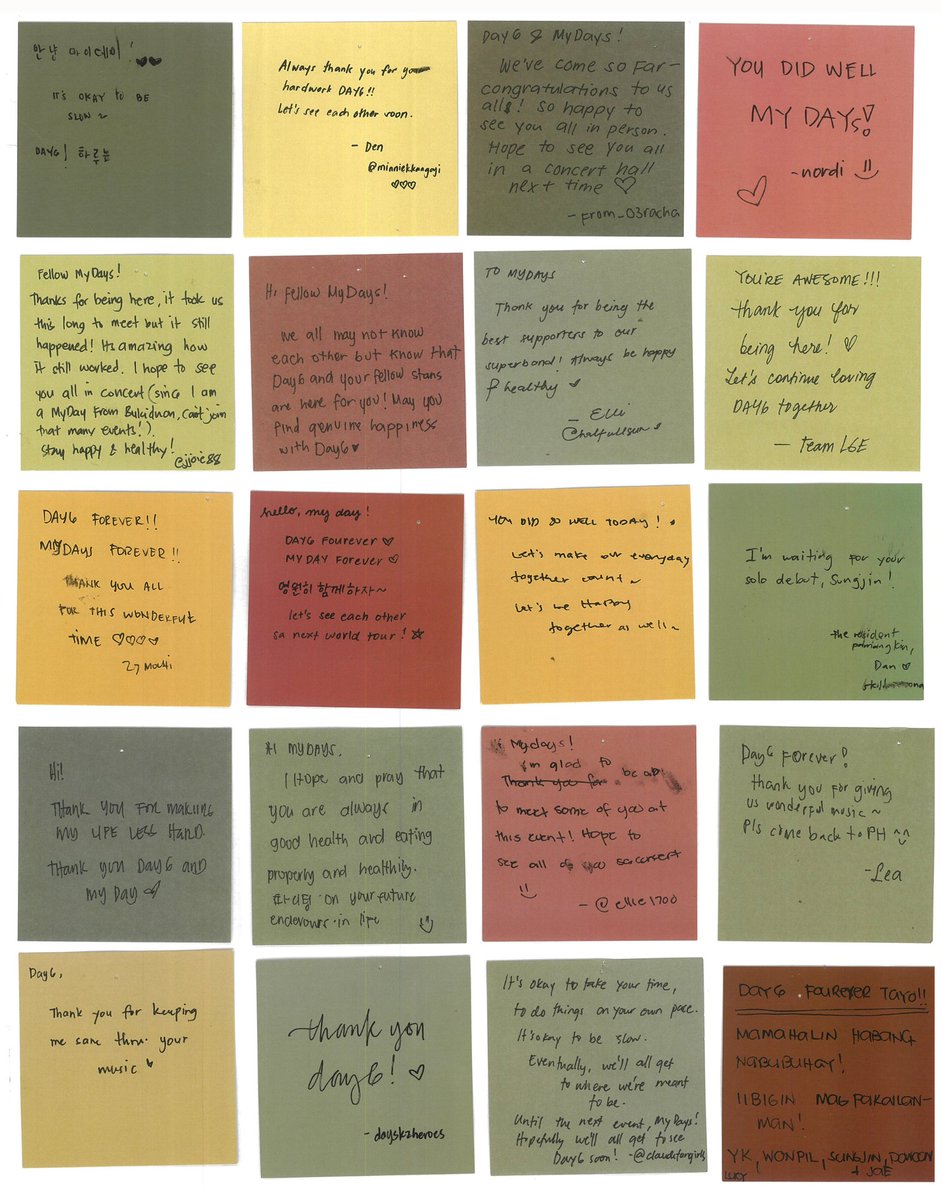 안녕 마이데이!
IT'S OKAY TO BE
SLOW ~
DAY6! 하루늘
Always thank you for your
hardwork DAY6!!
Let's see each other soon.
- Den
@minniekkangaji
Day6 & MyDays!
We've come so far -
congratulations to us
all! So happy to
see you all in person.
Hope to see you all
in a concert hall
next time
- from_03racha
YOU DID WELL
MY DAYS!
-nordi
Fellow MyDays!
Thanks for being here, it took us
this long to meet but it still
happened! It's amazing how
it still worked. I hope to see
you all in concert (since I am
a MyDay from Bukidnon, can't join
that many events!).
Stay happy & healthy!
@jjoie88
Hi fellow MyDays!
We all may not know
each other but know that
Day6 and your fellow stans
are here for you! May you
find genuine happiness
with Day6
TO MYDAYS
Thank you for being the
best supporters to our
superband! Always be happy
& healthy
- Elli
@halfullsun
YOU'RE AWESOME!!!
thank you for
being here!
Let's continue loving
DAY6 together
- Team LGE
DAY6 FOREVER!!
MYDAYS FOREVER!!
THANK YOU ALL
FOR THIS WONDERFUL
TIME
hello, my day!
DAY6 FOUREVER
MY DAY Forever
영원히 함께하자~
let's see each other
sa next world tour!
YOU DID SO WELL TODAY!
Let's make our everyday
together count~
Let's be Happy
together as well~
I'm waiting for your
solo debut, Sungjin!
the resident
Dan
Hi!
THANK YOU FOR MAKING
MY LIFE LESS HARD.
THANK YOU DAY6 AND
MY DAY
HI MYDAYS,
I Hope and pray that
you are always in
good health and eating
properly and healthily.
파이팅 on your future
endeavours in life
Hi Mydays!
I'm glad to
Thank you for be able
to meet some of you at
this event! Hope to
see all of you sa concert
- @ellie1700
Day6 Forever!
thank you for giving
us wonderful music ~
Pls come back to PH ^^
-Lea
Day6,
Thank you for keeping
me sane thru your
music
thank you
day6!
- dayskzheroes
It's okay to take your time,
to do things on your own pace.
It's okay to be slow.
Eventually, we'll all get
to where we're meant
to be.
Until the next event, MyDays!
Hopefully we'll all get to see
Day6 soon! -@claudetangirls
DAY6 FOUREVER TAYO!!
MAMAHALIN HABANG
NABUBUHAY!
IIBIGIN MAGPAKAILAN-
MAN!
YK, WONPIL, SUNGJIN, DOWOON
+ JAE
LUCY